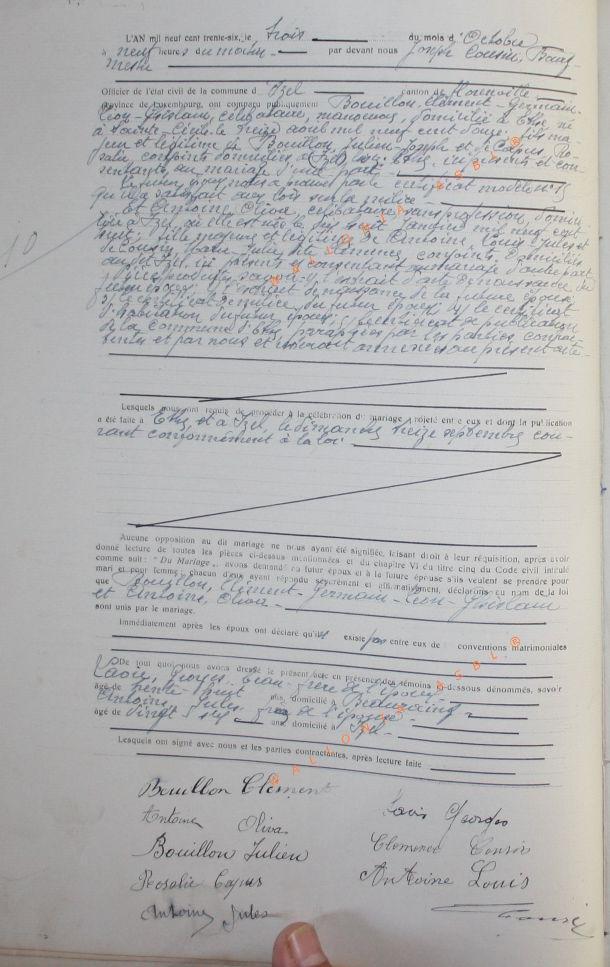 L'AN mil neuf cent trente-six, le trois du mois d'Octobre
à neuf heures du matin par devant nous Joseph Cousin, Bourg-
mestre
Officier de l'état civil de la commune d'Izel canton de Florenville
Province de Luxembourg, ont comparu publiquement Bouillon, Clément-Germain-
Léon-Ghislain, célibataire, manoeuvre, domicilié à Ethe, né
à Sainte-Cécile le treize août mil neuf cent douze, fils ma-
jeur et légitime de Bouillon, Julien-Joseph et de Capus, Ro-
salie, conjoints domiciliés à Ethe, ici présents et con-
sentants au mariage d'une part.
Le futur époux nous a prouvé par le certificat modèle n° 
qu'il a satisfait aux lois sur la milice
Et Antoine, Oliva, célibataire, sans profession, domici-
liée à Izel, où elle est née le dix huit janvier mil neuf cent
fille majeure et légitime de Antoine, Louis-Jules et
de Cousin, Marie-Julie-Clémence, conjoints domiciliés
au dit Izel, ici présents et consentant au mariage d'autre part
l'extrait d'acte de naissance du
futur époux; l'extrait de naissance de la future épouse;
le certificat de milice du futur époux; le certificat
du futur époux; le certificat de publication
de la commune d'Ethe, paraphés par les parties compa-
rantes et par nous et demeurant annexés au présent acte
10
Lesquels nous ont requis de procéder à la célébration du mariage projeté entre eux et dont la publication
a été faite à Ethe, et à Izel, le dimanche treize septembre cou-
rant conformément à la loi
Aucune opposition au dit mariage ne nous ayant été signifiée, faisant droit à leur réquisition, après avoir
donné lecture de toutes les pièces ci-dessus mentionnées et du chapitre VI du titre cinq du Code civil intitulé
comme suit: "Du Mariage", avons demandé au futur époux et à la future épouse s'ils veulent se prendre pour
mari et pour femme; chacun d'eux ayant répondu séparément et affirmativement, déclarons au nom de la loi
que Bouillon, Clément-Germain-Léon-Ghislain
et Antoine, Oliva
sont unis par le mariage.
Immédiatement après les époux ont déclaré qu'il existe pas entre eux de conventions matrimoniales
De tout quoi nous avons dressé le présent acte en présence des témoins ci-dessous dénommés, savoir
Georges, beau-frère de l'époux
âgé de trente huit ans, domicilié à
Antoine, Jules, frère de l'épouse
âgé de vingt sept ans, domicilié à Izel
Lesquels ont signé avec nous et les parties contractantes, après lecture faite
Bouillon Clément
Georges
Antoine Oliva
Clémence Cousin
Bouillon Julien
Antoine Louis
Rosalie Capus
Antoine Jules
Cousin
WALLONIA ASBL®
WALLONIA ASBL®